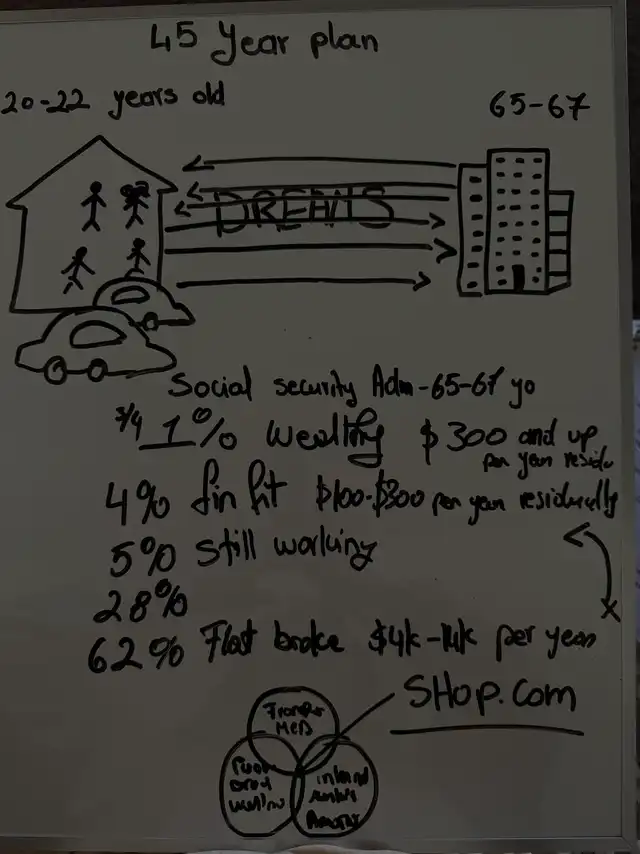 45 Year plan
20-22 years old
65-67
DREAMS
Social security Adm-65-67 yo
3/4 1% wealthy $300 and up
per year residu
4% fin fit $100-$300 per year residually
5% still working
28%
62% Flat broke $4k-14k per year
SHOP.COM